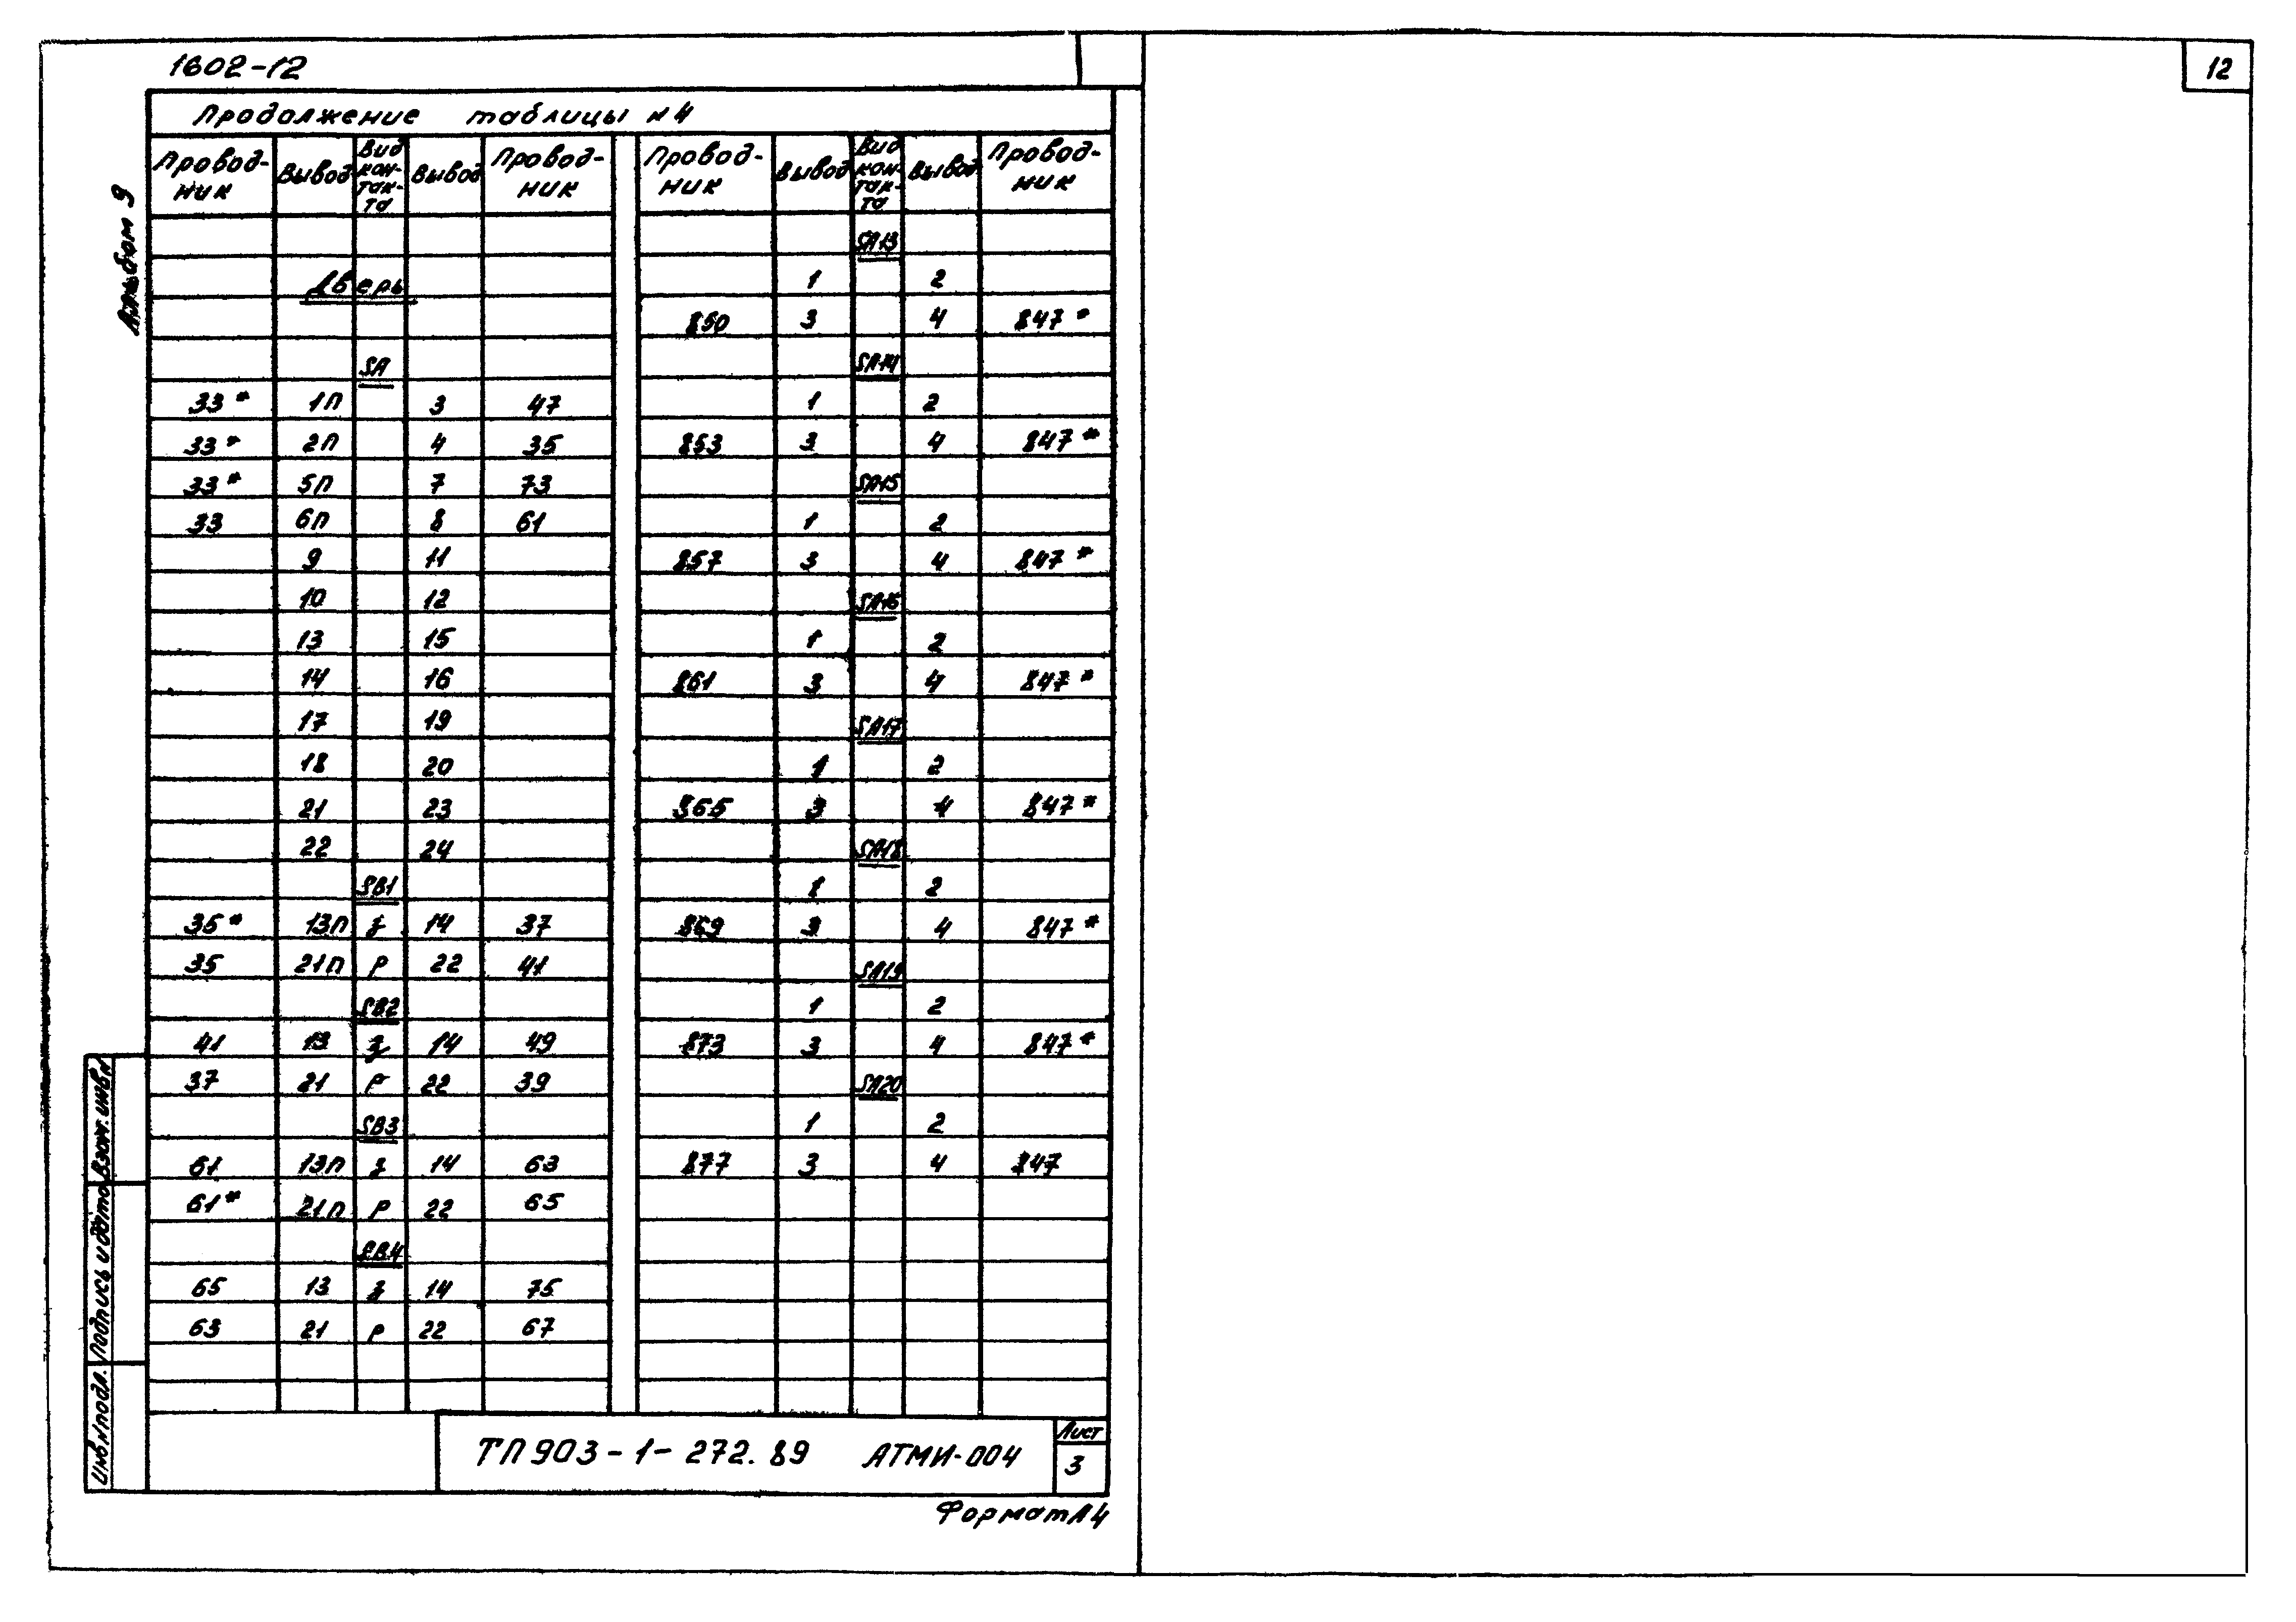 1602-12
12
Продолжение таблицы N 4
Альбом 9
Провод-ник Вывод Вид кон-так-та Вывод Провод-ник Провод-ник Вывод Вид кон-так-та Вывод Провод-ник
SA13
Дверь 1 2
850 3 4 847*
SA SA14
33* 1П 3 47 1 2
33* 2П 4 35 853 3 4 847*
33* 5П 7 73 SA15
33 6П 8 61 1 2
9 11 857 3 4 847*
10 12 SA16
13 15 1 2
14 16 861 3 4 847*
17 19 SA17
18 20 1 2
21 23 865 3 4 847*
22 24 SA18
SB1 1 2
35* 13П з 14 37 869 3 4 847*
35 21П р 22 41 SA19
SB2 1 2
41 13 з 14 49 873 3 4 847*
37 21 р 22 39 SA20
SB3 1 2
61 13П з 14 63 877 3 4 847
61* 21П р 22 65
SB4
65 13 з 14 75
63 21 р 22 67
Инв N подл. Подпись и дата Взам. инв N
ТП 903-1-272.89 АТМИ-004
Лист
3
Формат А4